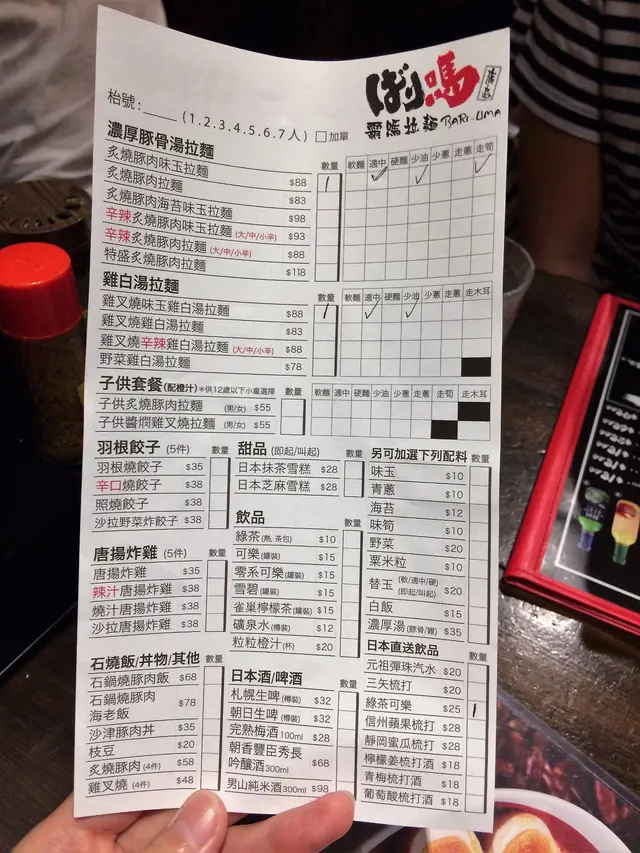 ばり嗎
廣島
霸嗎拉麵 BARI-UMA
枱號:____ (1.2.3.4.5.6.7人) □加單
濃厚豚骨湯拉麵 數量 軟麵 適中 硬麵 少油 少蔥 走蔥 走筍
炙燒豚肉味玉拉麵 $88
炙燒豚肉拉麵 $83
炙燒豚肉海苔味玉拉麵 $98
辛辣炙燒豚肉味玉拉麵 (大/中/小辛) $93
辛辣炙燒豚肉拉麵 (大/中/小辛) $88
特盛炙燒豚肉拉麵 $118
雞白湯拉麵 數量 軟麵 適中 硬麵 少油 少蔥 走蔥 走木耳
雞叉燒味玉雞白湯拉麵 $88
雞叉燒雞白湯拉麵 $83
雞叉燒辛辣雞白湯拉麵 (大/中/小辛) $88
野菜雞白湯拉麵 $78
子供套餐(配橙汁) *供12歲以下小童選擇 數量 軟麵 適中 硬麵 少油 少蔥 走蔥 走筍 走木耳
子供炙燒豚肉拉麵 (男/女) $55
子供醬燜雞叉燒拉麵 (男/女) $55
羽根餃子 (5件) 數量
羽根燒餃子 $35
辛口燒餃子 $38
照燒餃子 $38
沙拉野菜炸餃子 $38
唐揚炸雞 (5件) 數量
唐揚炸雞 $35
辣汁唐揚炸雞 $38
燒汁唐揚炸雞 $38
沙拉唐揚炸雞 $38
石燒飯/丼物/其他 數量
石鍋燒豚肉飯 $68
石鍋燒豚肉
海老飯 $78
沙津豚肉丼 $35
枝豆 $20
炙燒豚肉 (4件) $58
雞叉燒 (4件) $48
甜品 (即起/叫起) 數量
日本抹茶雪糕 $28
日本芝麻雪糕 $28
飲品 數量
綠茶(熱, 茶包) $10
可樂(罐裝) $15
零系可樂(罐裝) $15
雪碧(罐裝) $15
雀巢檸檬茶(罐裝) $15
礦泉水(樽裝) $12
粒粒橙汁(杯) $20
日本酒/啤酒 數量
札幌生啤(樽裝) $32
朝日生啤(樽裝) $32
完熟梅酒100ml $28
朝香豐臣秀長
吟釀酒300ml $68
男山純米酒300ml $98
另可加選下列配料 數量
味玉 $10
青蔥 $10
海苔 $12
味筍 $10
野菜 $20
粟米粒 $10
替玉 (軟/適中/硬) (即起/叫起) $20
白飯 $15
濃厚湯(豚骨/雞) $35
日本直送飲品 數量
元祖彈珠汽水 $20
三矢梳打 $20
綠茶可樂 $25
信州蘋果梳打 $28
靜岡蜜瓜梳打 $28
檸檬姜梳打酒 $18
青梅梳打酒 $18
葡萄酸梳打酒 $18